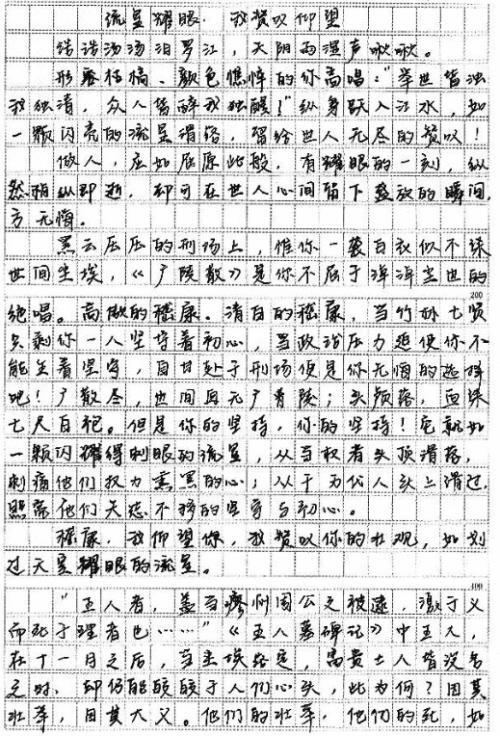 流星耀眼,我赞叹仰望
浩浩汤汤汨罗江,天阴雨湿声啾啾。
形容枯槁、颜色憔悴的你高唱:“举世皆浊
我独清,众人皆醉我独醒!”纵身跃入江水,如
一颗闪亮的流星滑落,留给世人无尽的赞叹!
做人,应如屈原此般,有耀眼的一刻,纵
然稍纵即逝,却可在世人心间留下盛放的瞬间,
方无悔。
黑云压压的刑场上,惟你一袭白衣似不染
世间尘埃,《广陵散》是你不屈于浑浑尘世的
200
绝唱。高傲的嵇康,清白的嵇康,当竹林七贤
只剩你一人坚守着初心,当政治压力迫使你不
能坐着坚守,自甘处于刑场便是你无悔的选择
吧!广散尽,世间再无广有陵;头颅落,血染
七尺白袍。但是你的坚持,你的坚持!宛就如
一颗闪耀得刺眼的流星,从当权者头顶滑落,
刺痛他们权力熏黑的心;从千万代人头上滑过,
照亮他们矢志不移的坚守与初心。
嵇康,我仰望你,我赞叹你的壮观,如划
过天星耀眼的流星。
400
“五人者,盖当蓼洲周公之被逮,激于义
而死于理者也……”《五人墓碑记》中五人,
在十一月之后,当尘埃路定,富贵士人皆没名
之时,却仍能皎皎于人们心头,此为何?因其
壮举,因其大义。他们的壮举,他们的死,如